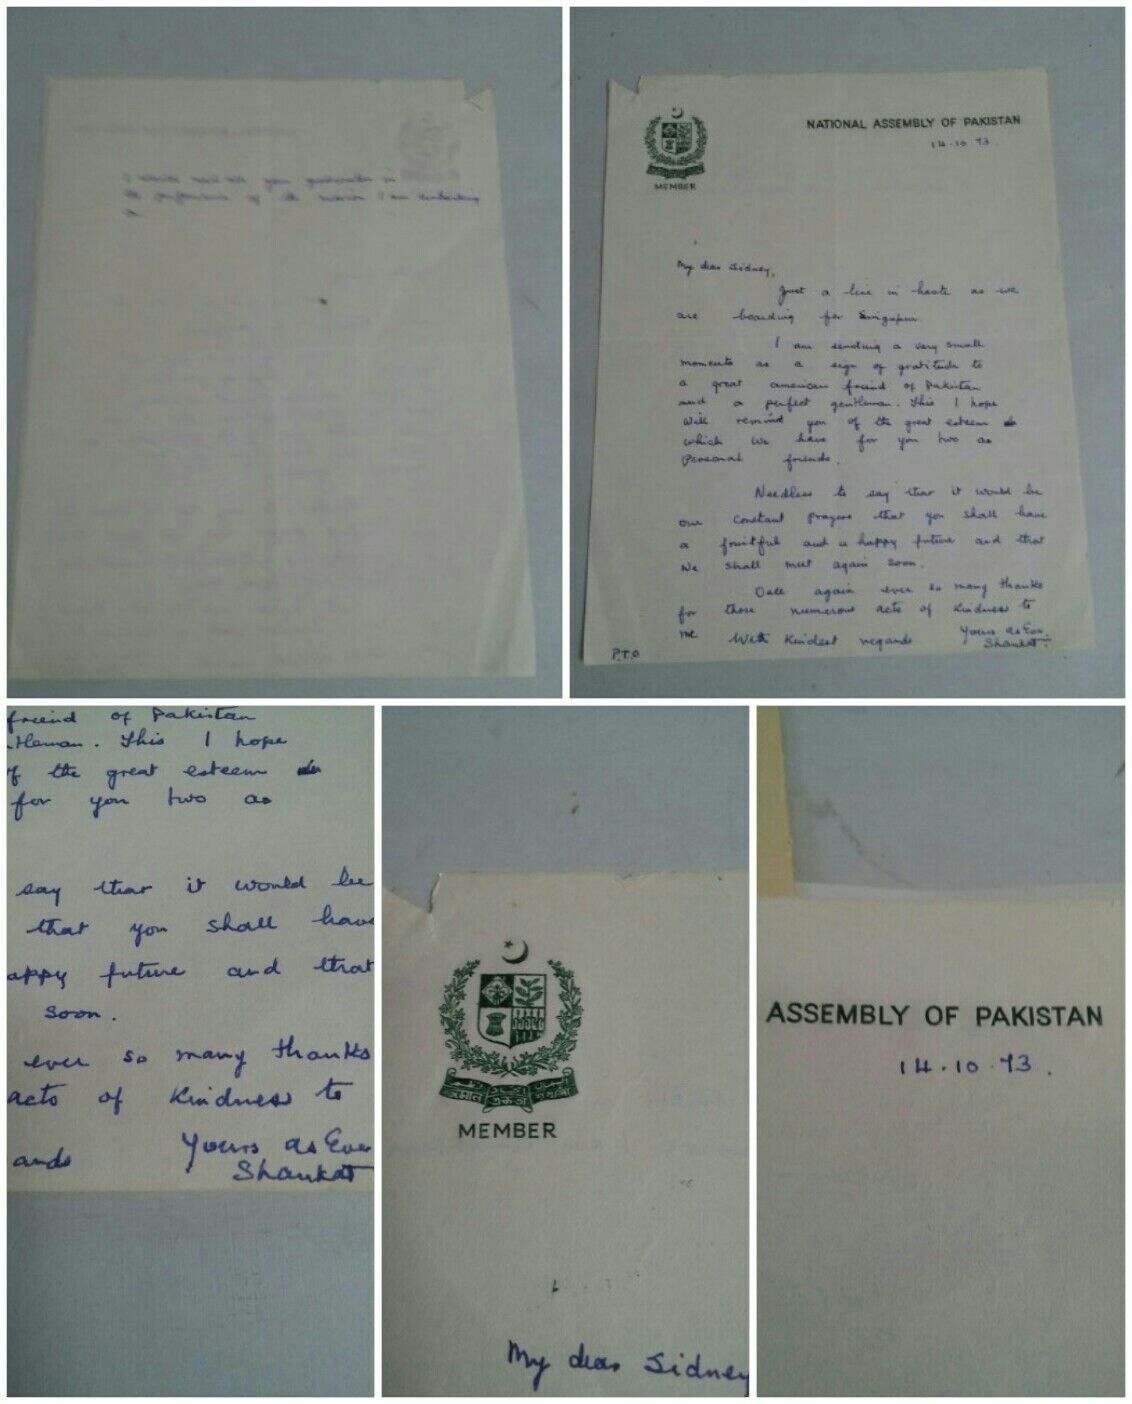 I would need all your generosities in
the performance of the mission I am embarking
on
NATIONAL ASSEMBLY OF PAKISTAN
14.10.73.
MEMBER
My dear Sidney,
Just a line in haste as we
are boarding for Singapur.
I am sending a very small
momento as a sign of gratitude to
a great american friend of Pakistan
and a perfect gentleman. This I hope
will remind you of the great esteem
which we have for you two as
Personal friends.
Needless to say that it would be
our constant prayers that you shall have
a fruitful and a happy future and that
we shall meet again soon.
Once again ever so many thanks
for those numerous acts of kindness to
me With kindest regards Yours as Ever.
Shaukat.
P.T.O
friend of Pakistan
tleman. This I hope
f the great esteem
for you two as
say that it would be
that you shall have
appy future and that
soon.
ever so many thanks
acts of kindness to
ards Yours as Ever
Shaukat
MEMBER
My dear Sidney
ASSEMBLY OF PAKISTAN
14.10.73.